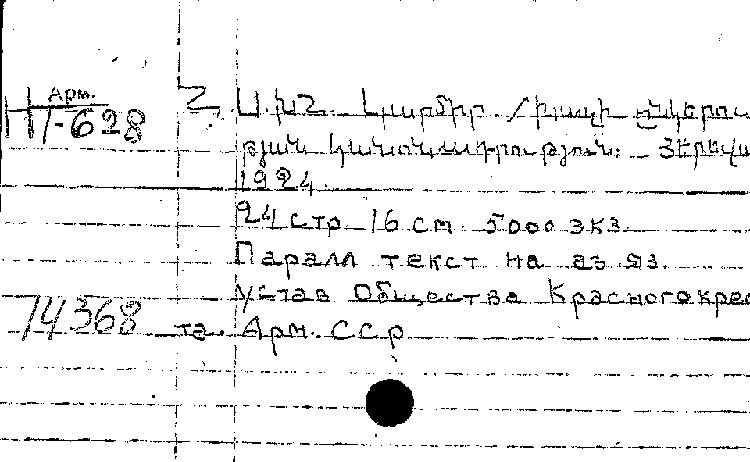 Арм.
Հ. Ս. Խ. Հ. Կարմիր Խաչի ընկերու
II 1-628
թյան կանոնադրություն: – Յերեվա
1924.
24 стр 16 см. 5000 экз.
Паралл текст на аз яз.
Устав Общества Красного крес
74368
та. Арм. ССР